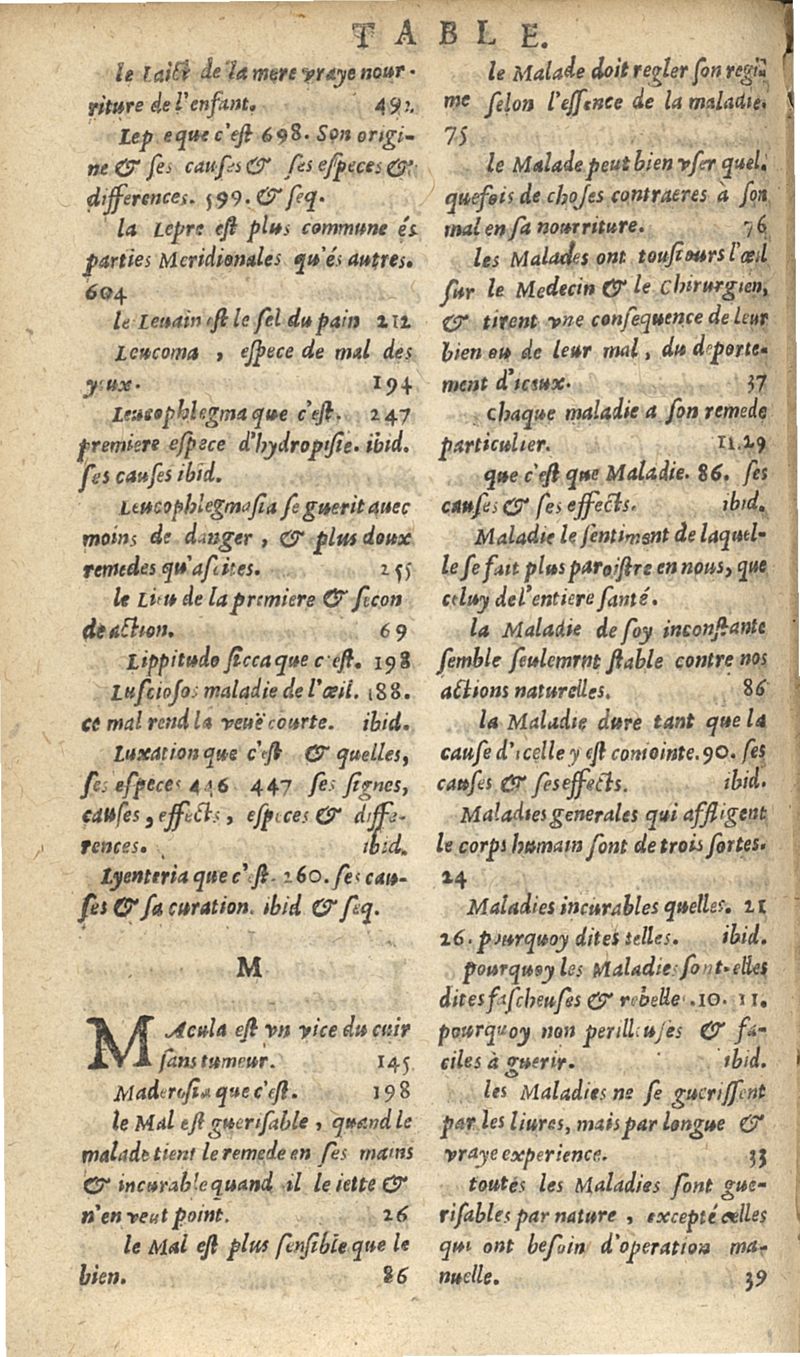 TABLE.
le Laict de la mere vraye nour-
riture de l'enfant. 492.
Lep e que c'est 698. Son origi-
ne & ses causes & ses especes &
differences. 599. & seq.
la Lepre est plus commune és
parties Meridionales qu'és autres.
604
le Leuain est le sel du pain 212
Leucoma , espece de mal des
yeux. 194
Leucophlegma que c'est. 247
premiere espece d'hydropisie. ibid.
ses causes ibid.
Leucophlegmasia se guerit auec
moins de danger , & plus doux
remedes qu'ascites. 255
le Lieu de la premiere & secon
de action. 69
Lippitudo sicca que c'est. 198
Lusciosos maladie de l'œil. 188.
ce mal rend la veuë courte. ibid.
Luxation que c'est & quelles,
ses especes 446 447 ses signes,
causes, effects, especes & diffe-
rences. ibid.
Lyenteria que c'est. 260. ses cau-
ses & sa curation. ibid & seq.
M
MAcula est vn vice du cuir
sans tumeur. 145
Maderosia que c'est. 198
le Mal est guerisable , quand le
malade tient le remede en ses mains
& incurable quand il le iette &
n'en veut point. 26
le Mal est plus sensible que le
bien. 86
le Malade doit regler son regi
me selon l'essence de la maladie.
75
le Malade peut bien vser quel.
quefois de choses contraeres à son
mal en sa nourriture. 76
les Malades ont tousiours l'œil
sur le Medecin & le Chirurgien,
& tirent vne consequence de leur
bien ou de leur mal, du deporte-
ment d'iceux. 37
chaque maladie a son remede
particulier. 11.29
que c'est que Maladie. 86. ses
causes & ses effects. ibid.
Maladie le sentiment de laquel-
le se fait plus paroistre en nous, que
celuy de l'entiere santé.
la Maladie de soy inconstante
semble seulemrnt stable contre nos
actions naturelles. 86
la Maladie dure tant que la
cause d'icelle y est conointe. 90. ses
causes & ses effects. ibid.
Maladies generales qui affligent
le corps humain sont de trois sortes.
24
Maladies incurables quelles. 21
26. pourquoy dites telles. ibid.
pourquoy les Maladies sont-elles
dites fascheuses & rebelle .10. 11.
pourquoy non perilleuses & fa-
ciles à guerir. ibid.
les Maladies ne se guerissent
par les liures, mais par longue &
vraye experience. 33
toutes les Maladies sont gue-
risables par nature , excepté celles
qui ont besoin d'operation ma-
nuelle. 39